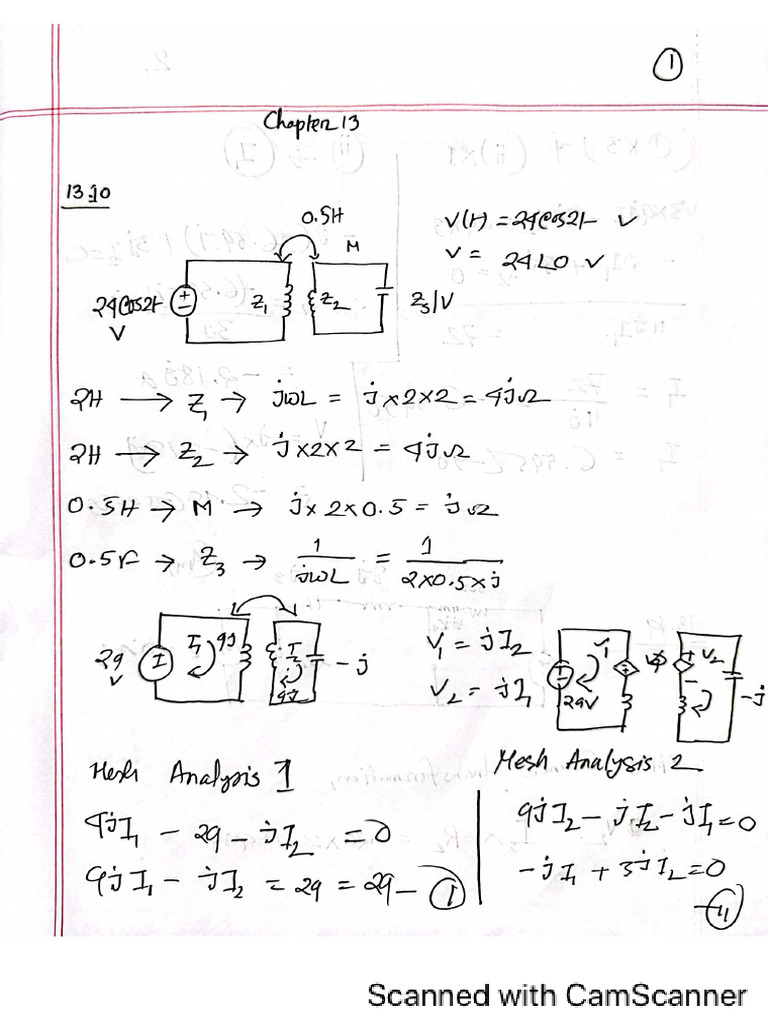 1
Chapter 13
13.10
0.5H
M
V(t) = 24Cos2t V
V = 24∠0 V
24Cos2t
V
Z₁
Z₂
Z₃/V
2H → Z₁ → jωL = j×2×2 = 4jΩ
2H → Z₂ → j×2×2 = 4jΩ
0.5H → M → j×2×0.5 = jΩ
0.5F → Z₃ → 1/jωL = 1/2×0.5×j
24
V
I₁
4j
I₂
4j
-j
V₁ = jI₂
V₂ = jI₁
V₁
24V
V₂
-j
Mesh Analysis 1
4jI₁ - 24 - jI₂ = 0
4jI₁ - jI₂ = 24 = 24 - ①
Mesh Analysis 2
4jI₂ - jI₂ - jI₁ = 0
-jI₁ + 3jI₂ = 0
-(ii)
Scanned with CamScanner